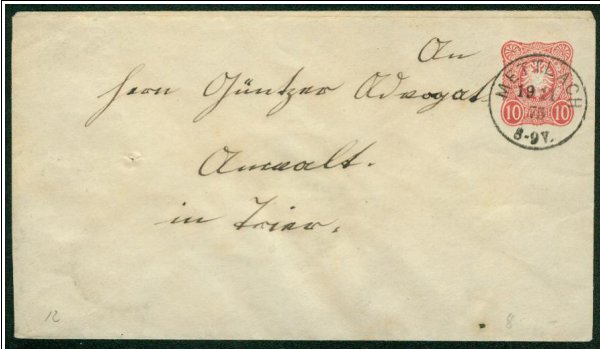 An
Herrn Güntzer Advogat
Anwalt.
in Trier.
METTLACH
19
75
8-9V.
10 10
12
8 -